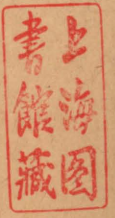 上海图
書館藏